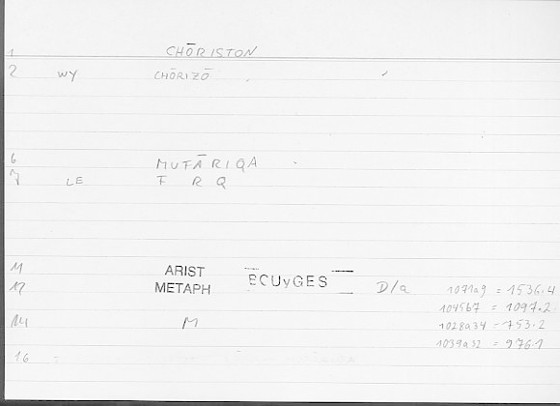 1 CHŌRISTON
2 WY CHŌRIZŌ
6 MUFĀRIQA
7 LE F R Q
11 ARIST
12 METAPH ECUyGES D/a 1071a9 = 1536.4
1045b7 = 1097.2
14 M 1028a34 = 753.2
1039a32 = 976.1
16